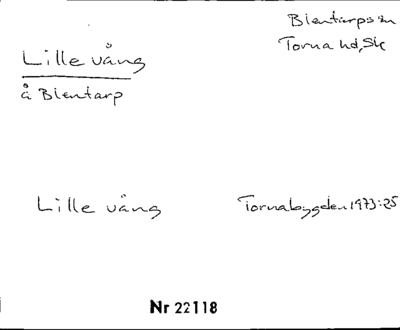 Blentarps sn
Torna hd, Sk
Lille vång
å Blentarp
Lille vång Tornabygden 1973:25
Nr 22118